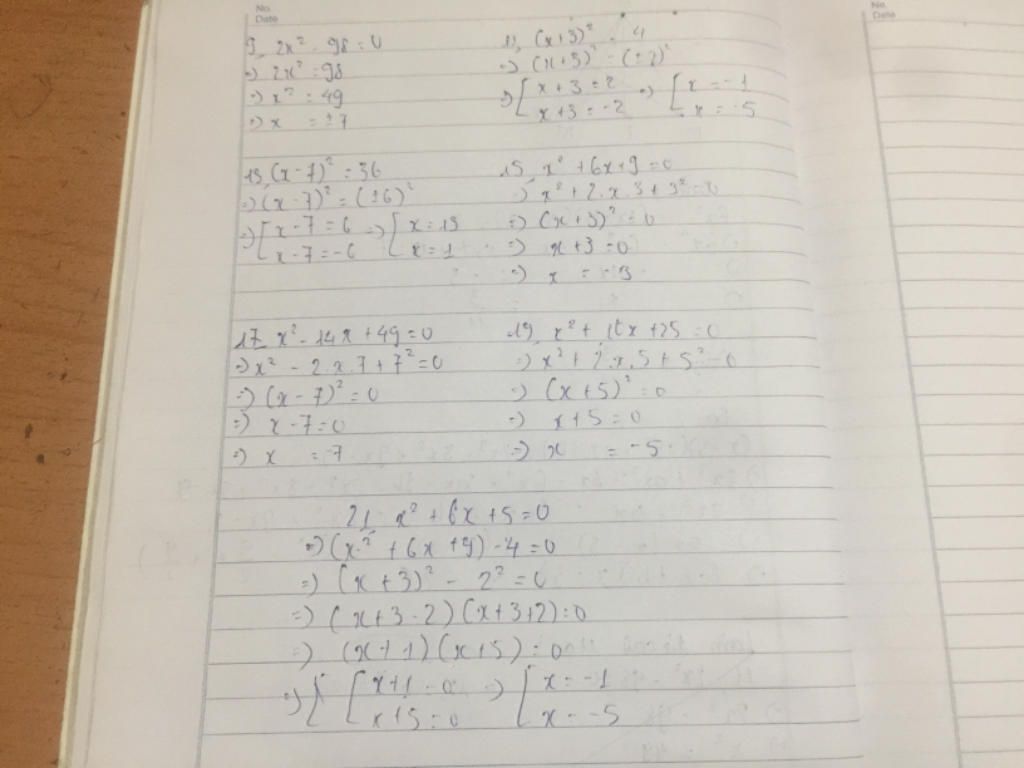 No.
Date
No.
Date
9, 2x² - 98 = 0
=) 2x² = 98
=) x² = 49
=) x = ±7
11, (x+3)² = 4
=) (x+3)² = (±2)²
=) [ x+3 = 2 =) [ x = -1
x+3 = -2 x = -5
13, (x-7)² = 36
=) (x-7)² = (±6)²
=) [ x-7 = 6 =) [ x = 13
x-7 = -6 x = 1
15, x² + 6x + 9 = 0
=) x² + 2.x.3 + 3² = 0
=) (x+3)² = 0
=) x+3 = 0
=) x = -3
17, x² - 14x + 49 = 0
=) x² - 2.x.7 + 7² = 0
=) (x-7)² = 0
=) x-7 = 0
=) x = 7
19, x² + 10x + 25 = 0
=) x² + 2.x.5 + 5² = 0
=) (x+5)² = 0
=) x+5 = 0
=) x = -5
21, x² + 6x + 5 = 0
=) (x² + 6x + 9) - 4 = 0
=) (x+3)² - 2² = 0
=) (x+3-2)(x+3+2) = 0
=) (x+1)(x+5) = 0
=) [ x+1 = 0 =) [ x = -1
x+5 = 0 x = -5